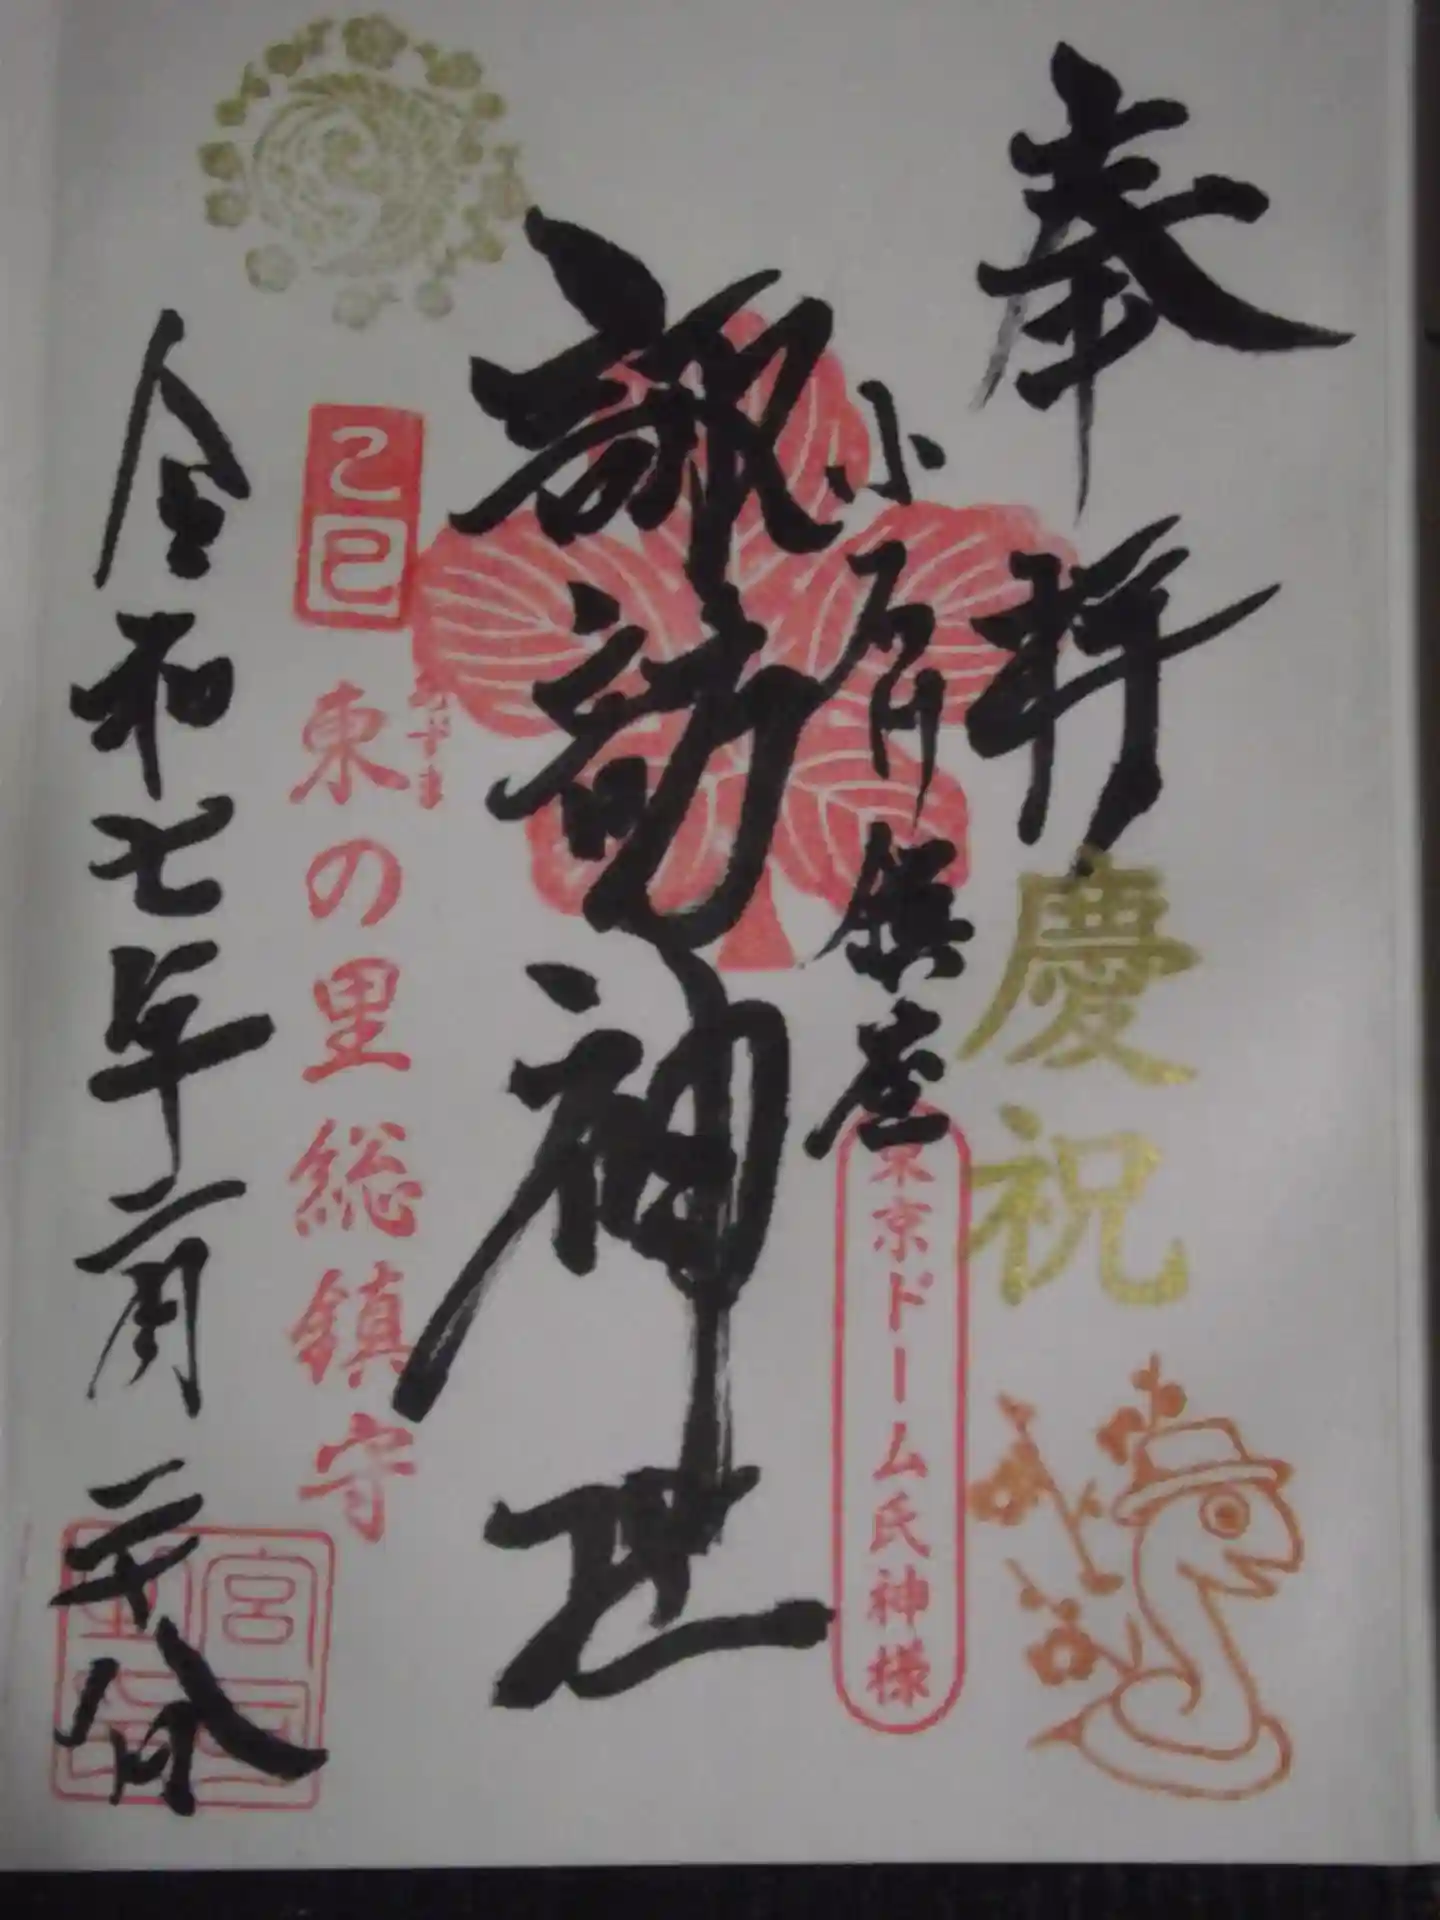 奉拝
慶祝
小石川鎮座
東京ドーム氏神様
諏訪神社
乙巳
東の里総鎮守
令和七年二月二十八日